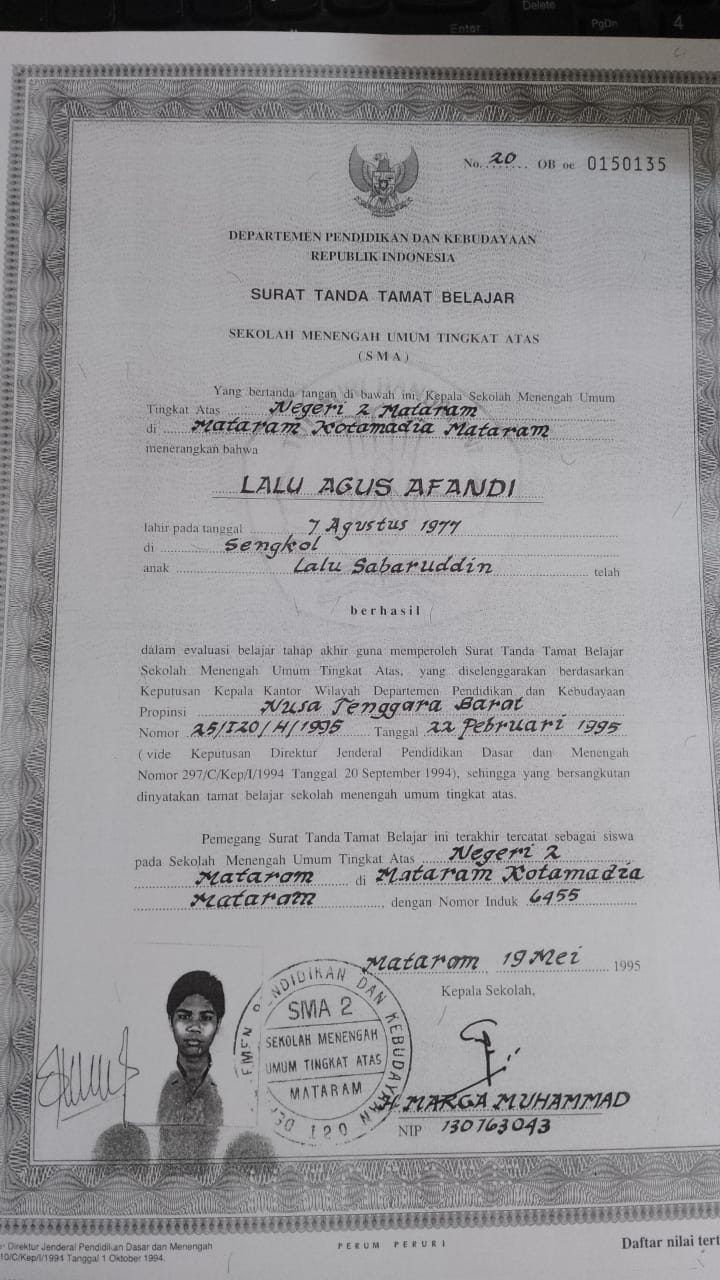 Delete
Enter
PgDn
4
No. 20 OB oe 0150135
DEPARTEMEN PENDIDIKAN DAN KEBUDAYAAN
REPUBLIK INDONESIA
SURAT TANDA TAMAT BELAJAR
SEKOLAH MENENGAH UMUM TINGKAT ATAS
( S M A )
Yang bertanda tangan di bawah ini, Kepala Sekolah Menengah Umum
Tingkat Atas Negeri 2 Mataram
di Mataram Kotamadia Mataram
menerangkan bahwa
LALU AGUS AFANDI
lahir pada tanggal 7 Agustus 1977
di Sengkol
anak Lalu Sabaruddin telah
berhasil
dalam evaluasi belajar tahap akhir guna memperoleh Surat Tanda Tamat Belajar
Sekolah Menengah Umum Tingkat Atas, yang diselenggarakan berdasarkan
Keputusan Kepala Kantor Wilayah Departemen Pendidikan dan Kebudayaan
Propinsi Nusa Tenggara Barat
Nomor 25/I20/H/1995 Tanggal 22 Pebruari 1995
( vide Keputusan Direktur Jenderal Pendidikan Dasar dan Menengah
Nomor 297/C/Kep/I/1994 Tanggal 20 September 1994), sehingga yang bersangkutan
dinyatakan tamat belajar sekolah menengah umum tingkat atas.
Pemegang Surat Tanda Tamat Belajar ini terakhir tercatat sebagai siswa
pada Sekolah Menengah Umum Tingkat Atas Negeri 2
Mataram di Mataram Kotamadia
Mataram, dengan Nomor Induk 6455
Mataram, 19 Mei 1995
Kepala Sekolah,
PENDIDIKAN DAN KEBUDAYAAN
SMA 2
SEKOLAH MENENGAH
UMUM TINGKAT ATAS
MATARAM
H. MARGA MUHAMMAD
NIP 130763043
Direktur Jenderal Pendidikan Dasar dan Menengah
10/C/Kep/I/1994 Tanggal 1 Oktober 1994.
PERUM PERURI
Daftar nilai tert